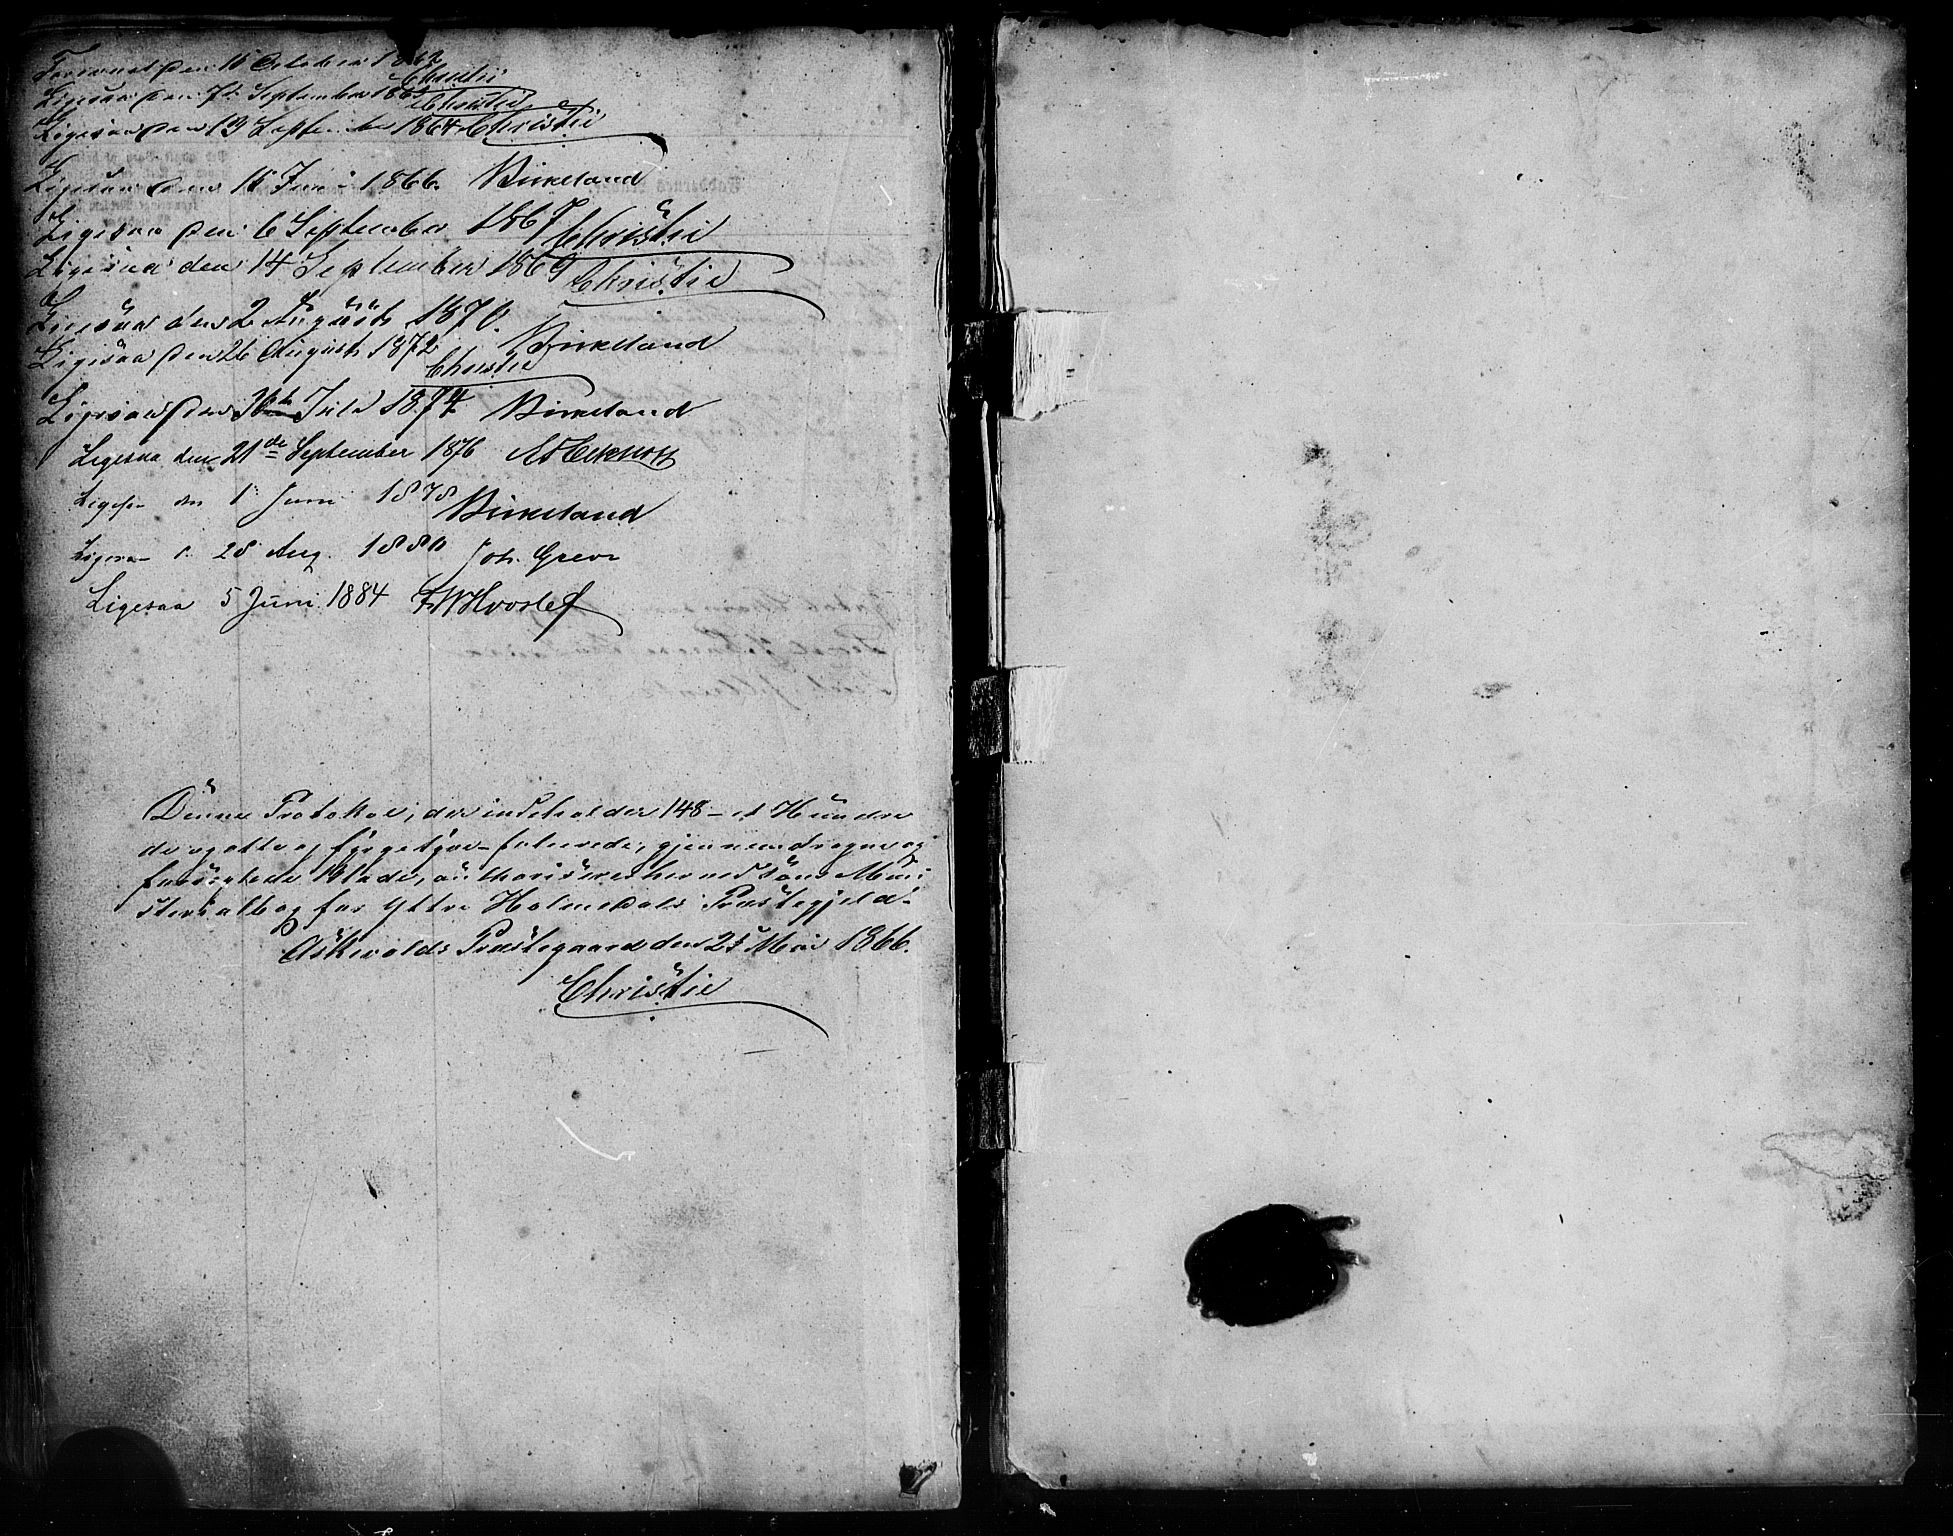 Forevist den 15 October 1862
Christie
Ligesaa den 7de September 1863 Christie
Ligesaa den 19 September 1864 Christie
Ligesaa den 15 Juni 1866. Birkeland
Ligesaa den 6 September 1867 Christie
Ligesaa den 14 September 1869 Christie
Ligesaa den 2 August 1870. Birkeland
Ligesaa den 26 August 1872 Christie
Ligesaa den Juli 1874 Birkeland
Ligesaa den 21de September 1876
Ligesaa den 1 Juni 1878 Birkeland
Ligesaa d. 28 Aug. 1880 Joh. Greve
Ligesaa 5 Juni 1884 FWHvoslef
Denne Protokol, der indeholder 148 – et Hundre
de og otte og fyrgetyve – folierede, gjennemdragne og
forseglede Blade, authoriseres herved som Mini
sterialbog for Yttre Holmedals Præstegjeld.
Askevolds Præstegaard den 25 Mai 1866.
Christie